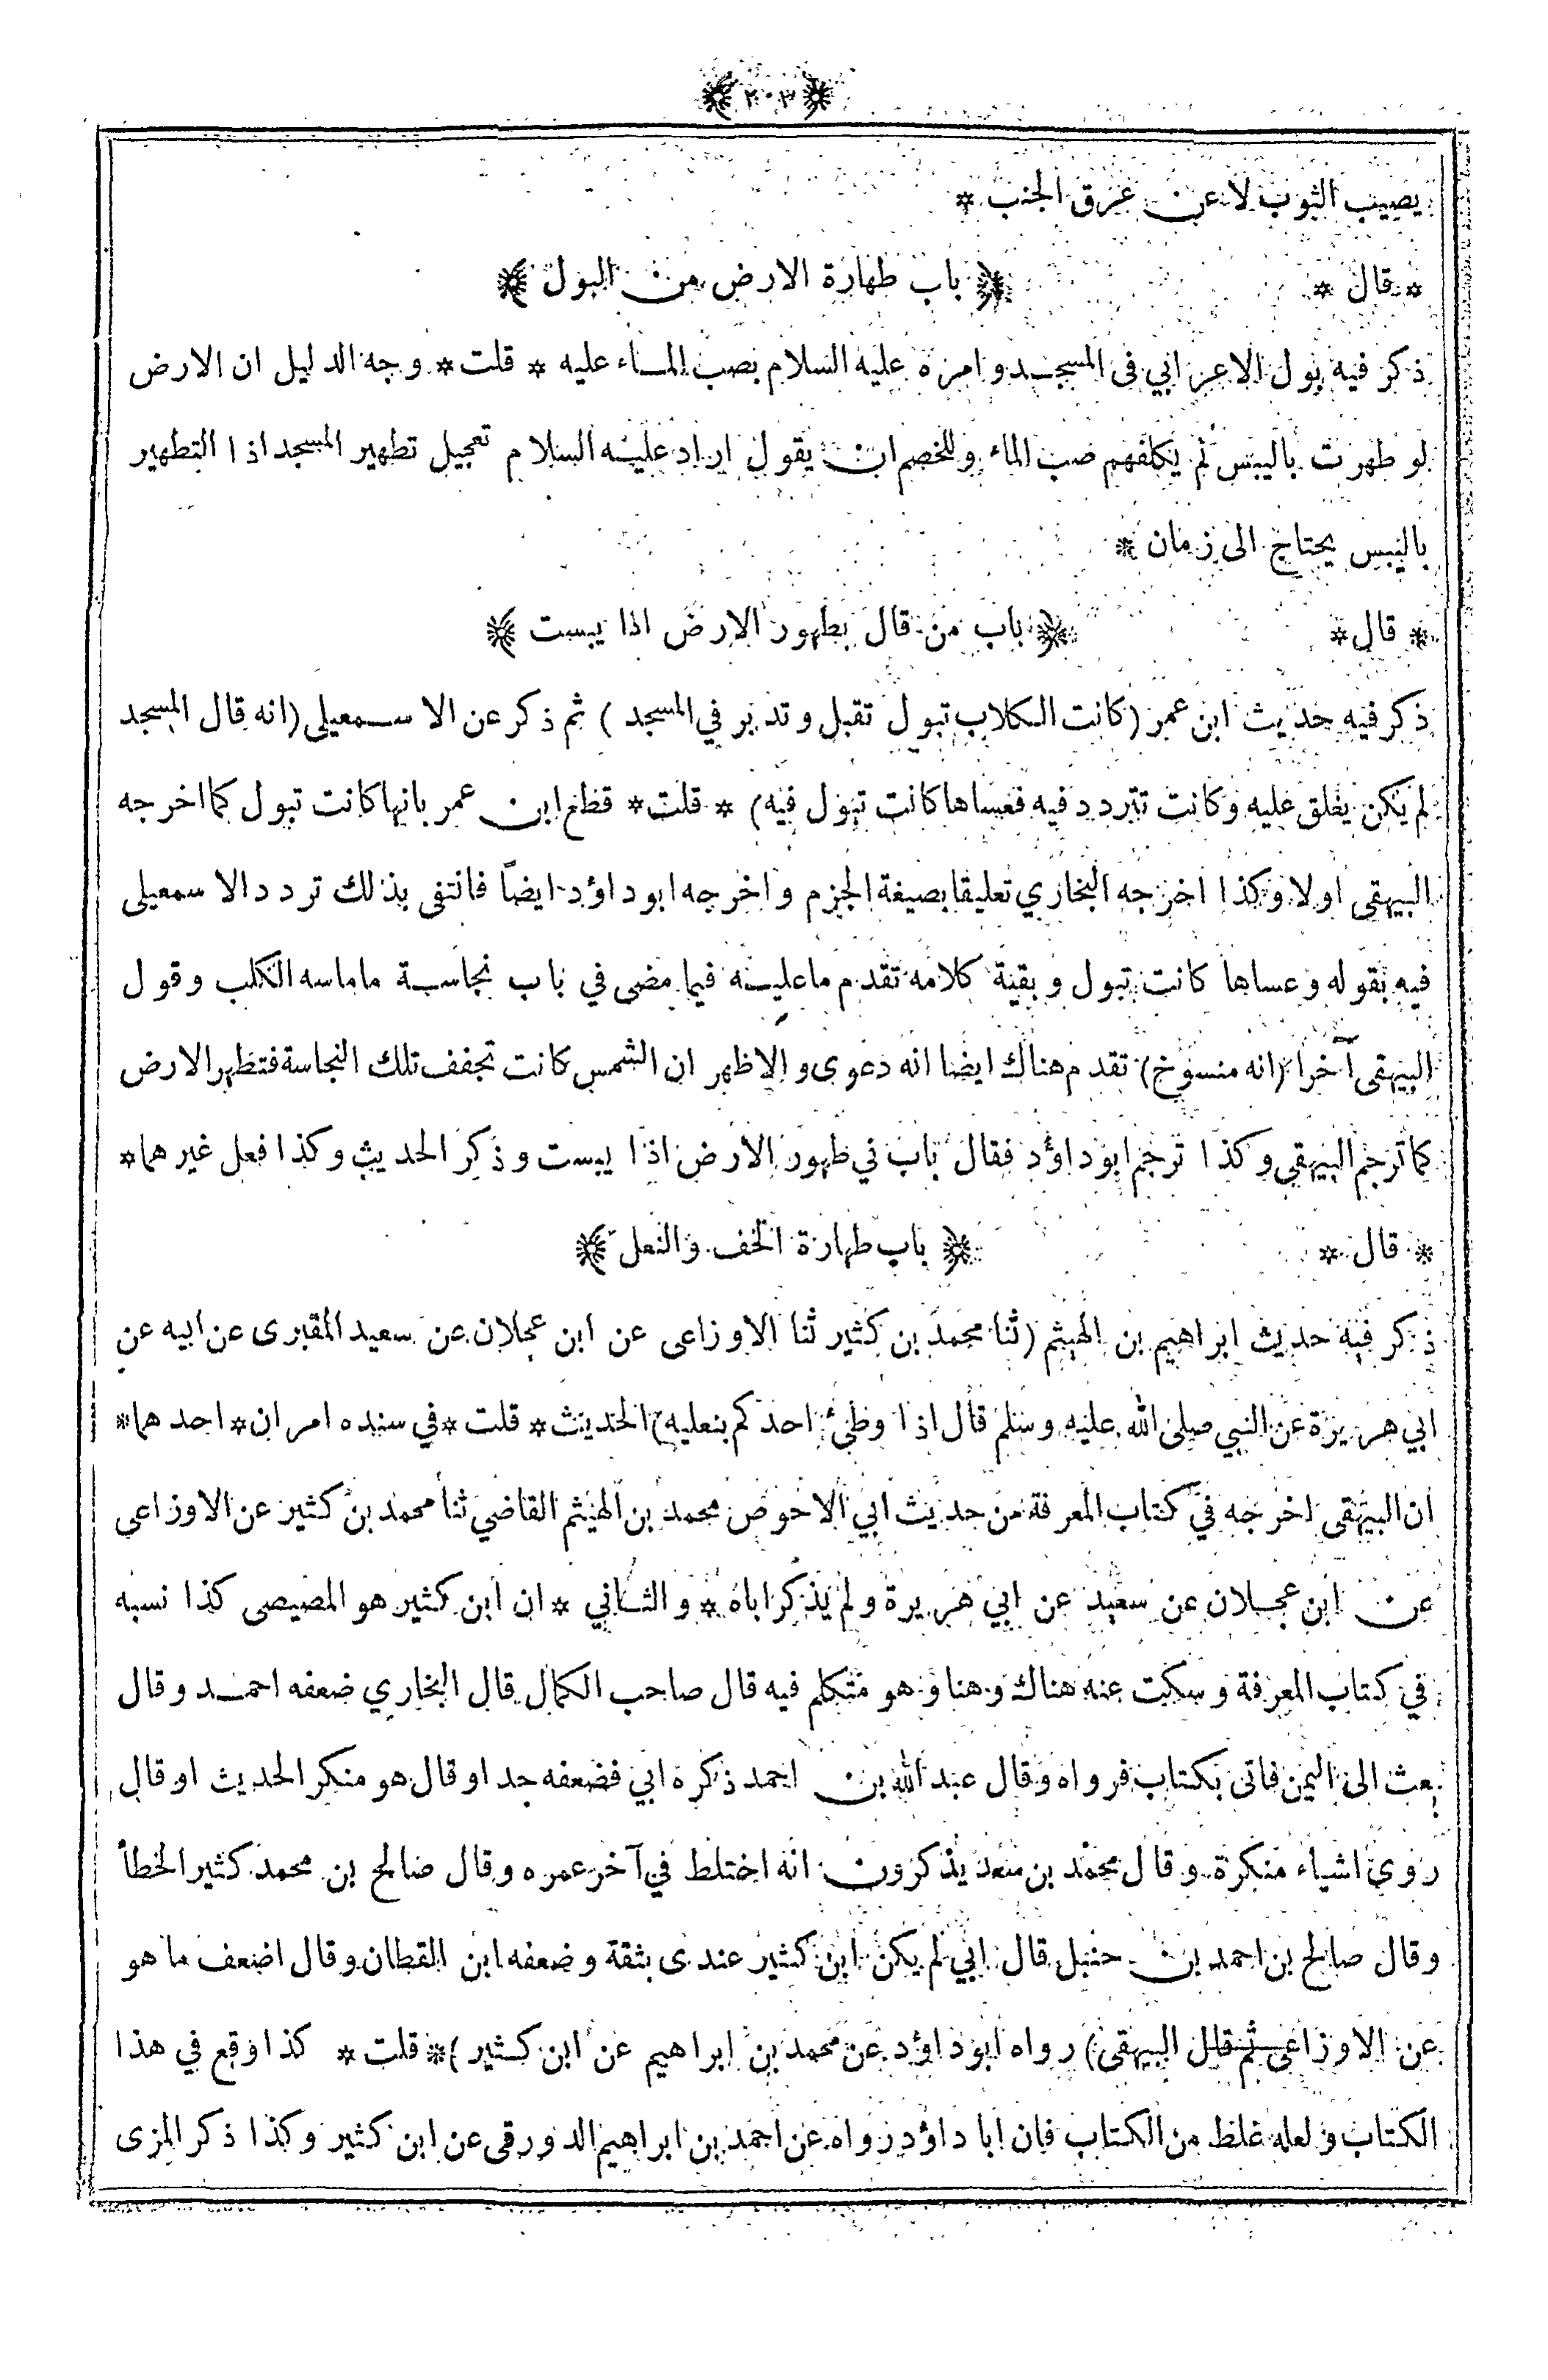 ﴿٢٠٣﴾
يصيب الثوب لا عن عرق الجنب *
* قال * ﴿ باب طهارة الارض من البول ﴾
ذكر فيه بول الاعرابي فى المسجد وامره عليه السلام بصب الماء عليه * قلت * وجه الدليل ان الارض
لو طهرت باليبس لم يكلفهم صب الماء وللخصم ان يقول اراد عليه السلام تعجيل تطهير المسجد اذا التطهير
باليبس يحتاج الى زمان *
* قال * ﴿ باب من قال بطهور الارض اذا يبست ﴾
ذكر فيه حديث ابن عمر (كانت الكلاب تبول تقبل وتدبر في المسجد ) ثم ذكر عن الاسمعيلى (انه قال المسجد
لم يكن يغلق عليه وكانت تتردد فيه فعساها كانت تبول فيه) * قلت * قطع ابن عمر بانها كانت تبول كما اخرجه
البيهقى اولا وكذا اخرجه البخاري تعليقا بصيغة الجزم واخرجه ابو داؤد ايضاً فانتفى بذلك تردد الاسمعيلى
فيه بقوله وعساها كانت تبول وبقية كلامه تقدم ما عليه فيما مضى في باب نجاسة ماماسه الكلب وقول
البيهقى آخرا (انه منسوخ) تقدم هناك ايضا انه دعوى والاظهر ان الشمس كانت تجفف تلك النجاسة فتطهر الارض
كما ترجم البيهقى وكذا ترجم ابو داؤد فقال باب في طهور الارض اذا يبست وذكر الحديث وكذا فعل غيرهما *
* قال * ﴿ باب طهارة الخف والنعل ﴾
ذكر فيه حديث ابراهيم بن الهيثم (ثنا محمد بن كثير ثنا الاوزاعى عن ابن عجلان عن سعيد المقبرى عن ابيه عن
ابي هريرة عن النبي صلى الله عليه وسلم قال اذا وطئ احدكم بنعليه) الحديث * قلت * في سنده امران * احدهما *
ان البيهقى اخرجه في كتاب المعرفة من حديث ابي الاحوص محمد بن الهيثم القاضي ثنا محمد بن كثير عن الاوزاعى
عن ابن عجلان عن سعيد عن ابي هريرة ولم يذكر اباه * والثاني * ان ابن كثير هو المصيصى كذا نسبه
في كتاب المعرفة وسكت عنه هناك وهنا وهو متكلم فيه قال صاحب الكمال قال البخاري ضعفه احمد وقال
بعث الى اليمن فاتى بكتاب فرواه وقال عبد الله بن احمد ذكره ابي فضعفه جدا وقال هو منكر الحديث او قال
روى اشياء منكرة وقال محمد بن سعد يذكرون انه اختلط في آخر عمره وقال صالح بن محمد كثير الخطأ
وقال صالح بن احمد بن حنبل قال ابي لم يكن ابن كثير عندى بثقة وضعفه ابن القطان وقال اضعف ما هو
عن الاوزاعى ثم قال البيهقى) رواه ابو داؤد عن محمد بن ابراهيم عن ابن كثير) * قلت * كذا وقع في هذا
الكتاب ولعله غلط من الكتاب فان ابا داؤد رواه عن احمد بن ابراهيم الدورقى عن ابن كثير وكذا ذكر المزى